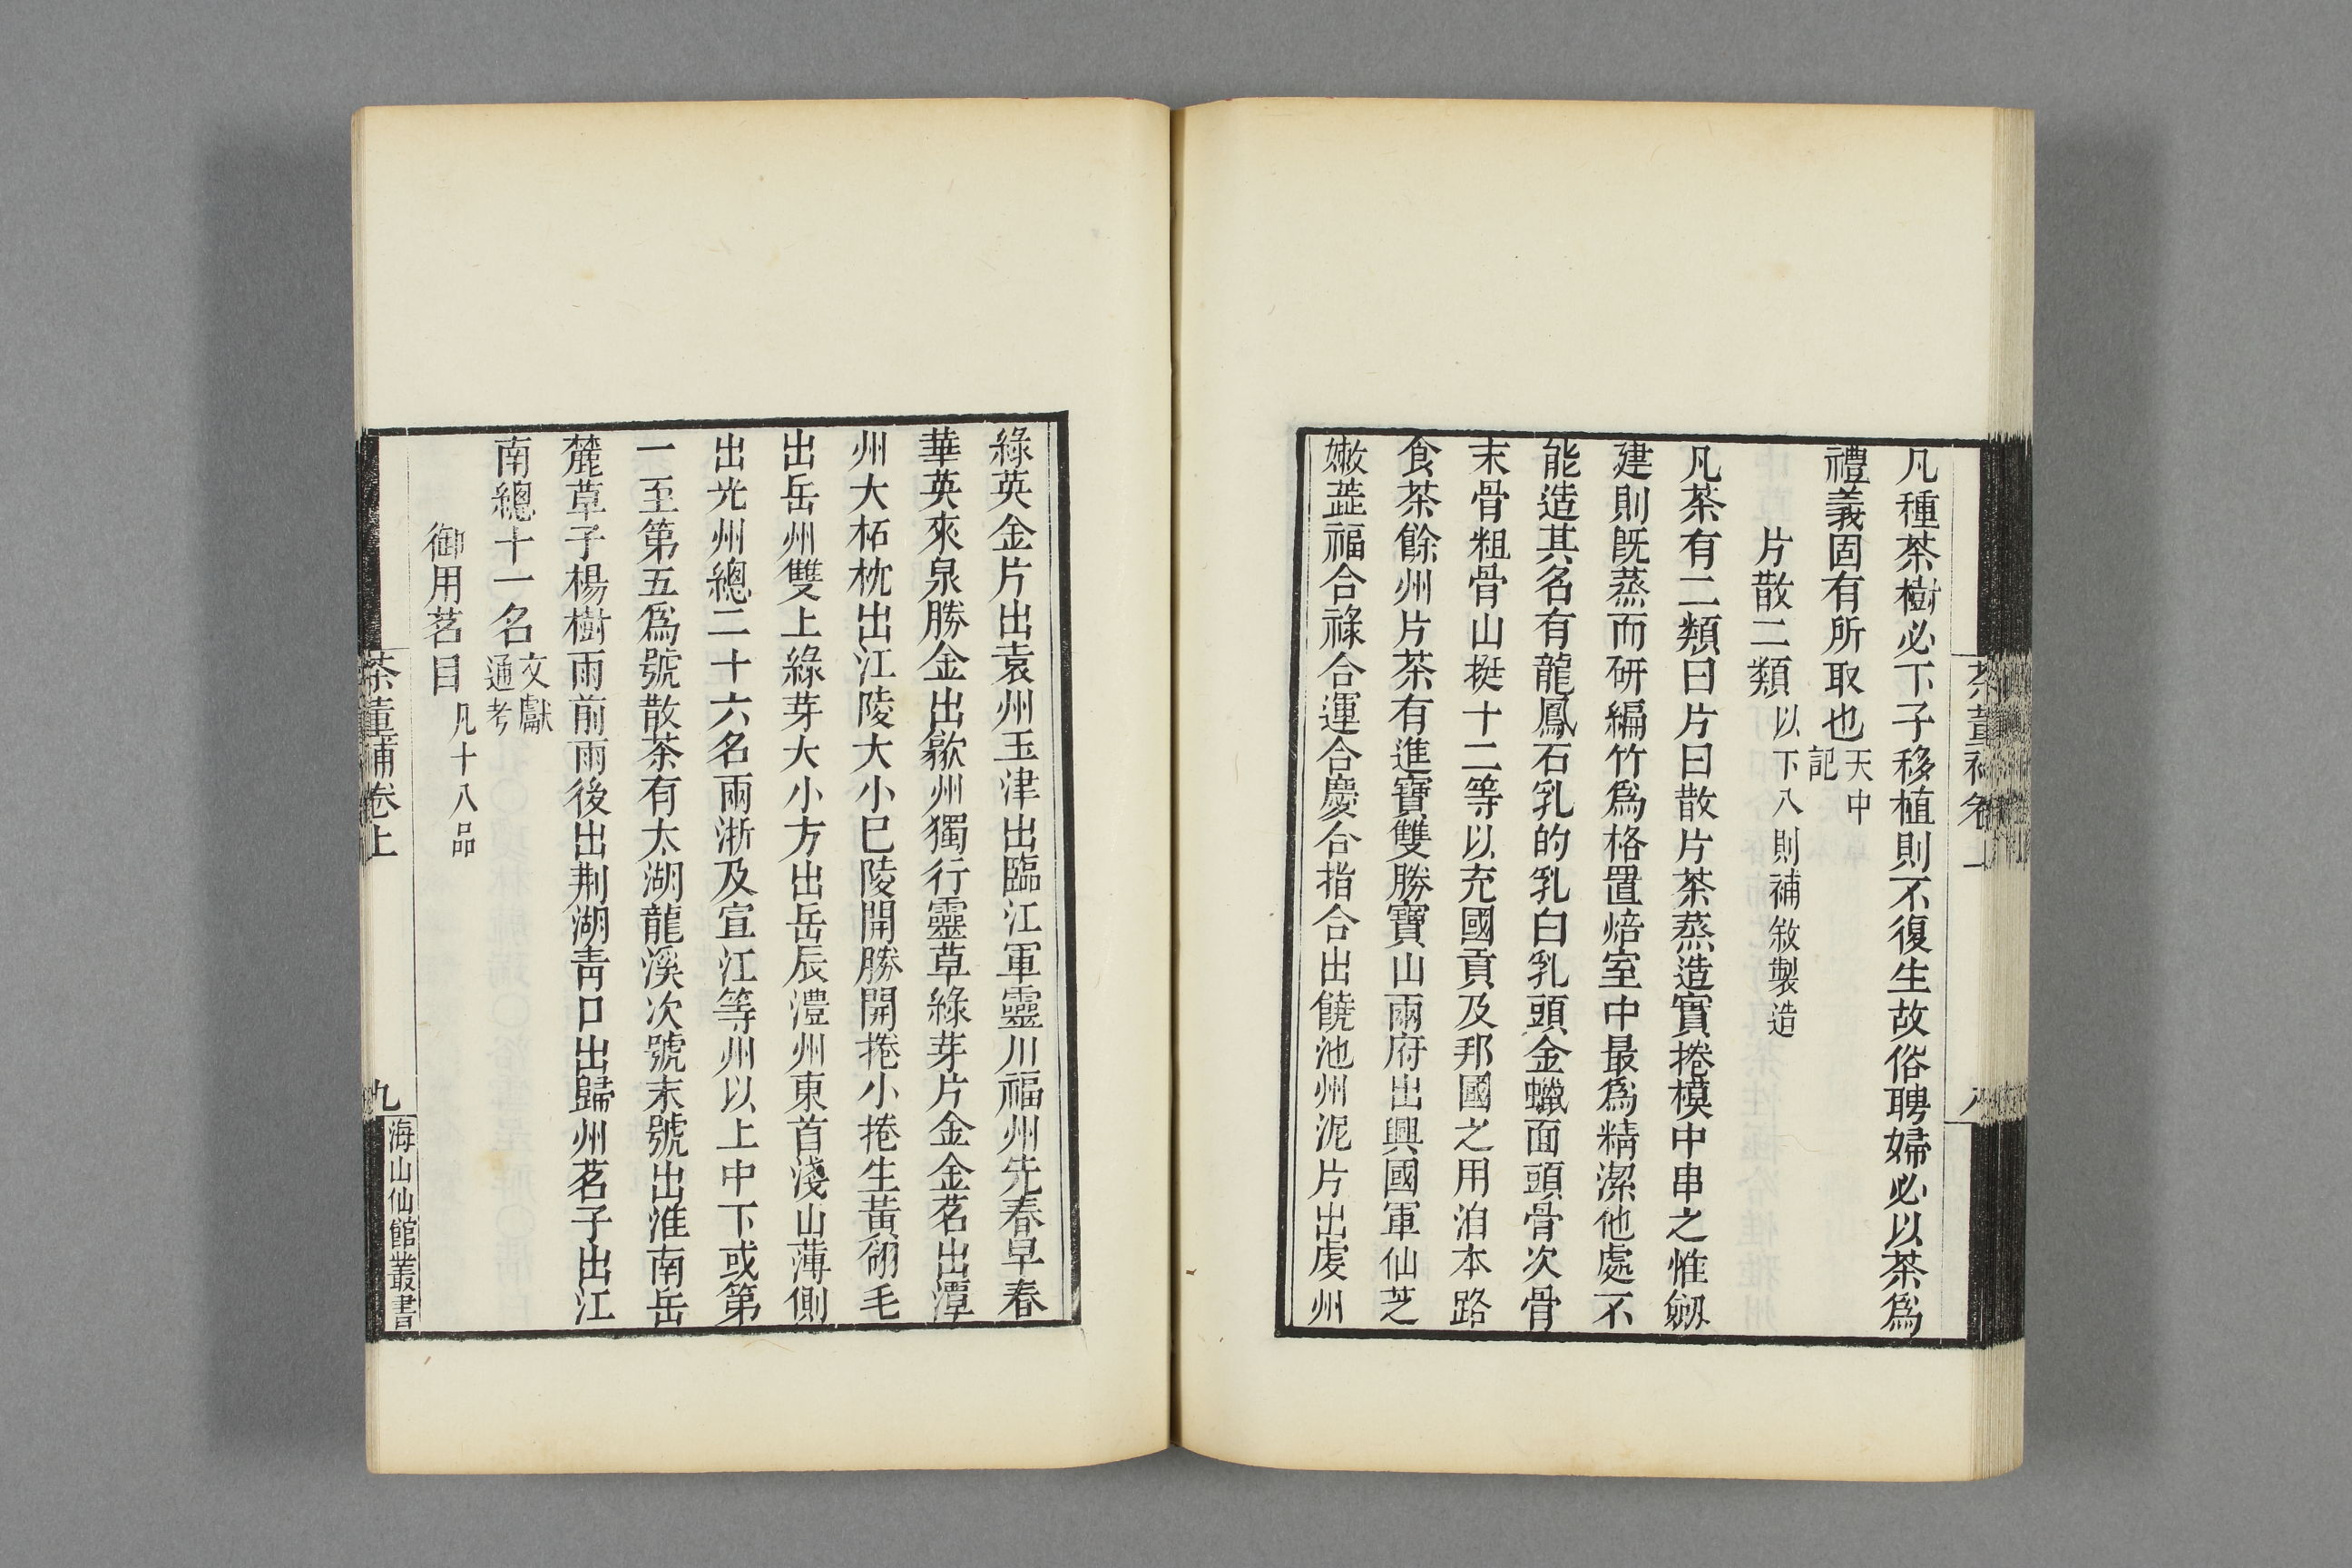 茶董補卷上
八
凡種茶樹必下子移植則不復生故俗聘婦必以茶爲
禮義固有所取也天中記
片散二類以下八則補敘製造
凡茶有二類曰片曰散片茶蒸造實捲模中串之惟劒
建則旣蒸而研編竹爲格置焙室中最爲精潔他處不
能造其名有龍鳳石乳的乳白乳頭金蠟面頭骨次骨
末骨粗骨山挺十二等以充國貢及邦國之用洎本路
食茶餘州片茶有進寶雙勝寶山兩府出興國軍仙芝
嫩蘂福合祿合運合慶合指合出饒池州泥片出虔州
綠英金片出袁州玉津出臨江軍靈川福州先春早春
華英來泉勝金出歙州獨行靈草綠芽片金金茗出潭
州大柘枕出江陵大小巴陵開勝開捲小捲生黃翎毛
出岳州雙上綠芽大小方出岳辰澧州東首淺山薄側
出光州總二十六名兩浙及宣江等州以上中下或第
一至第五爲號散茶有太湖龍溪次號末號出淮南岳
麓草子楊樹雨前雨後出荆湖青口出歸州茗子出江
南總十一名文獻通考
御用茗目凡十八品
茶董補卷上
九
海山仙館叢書